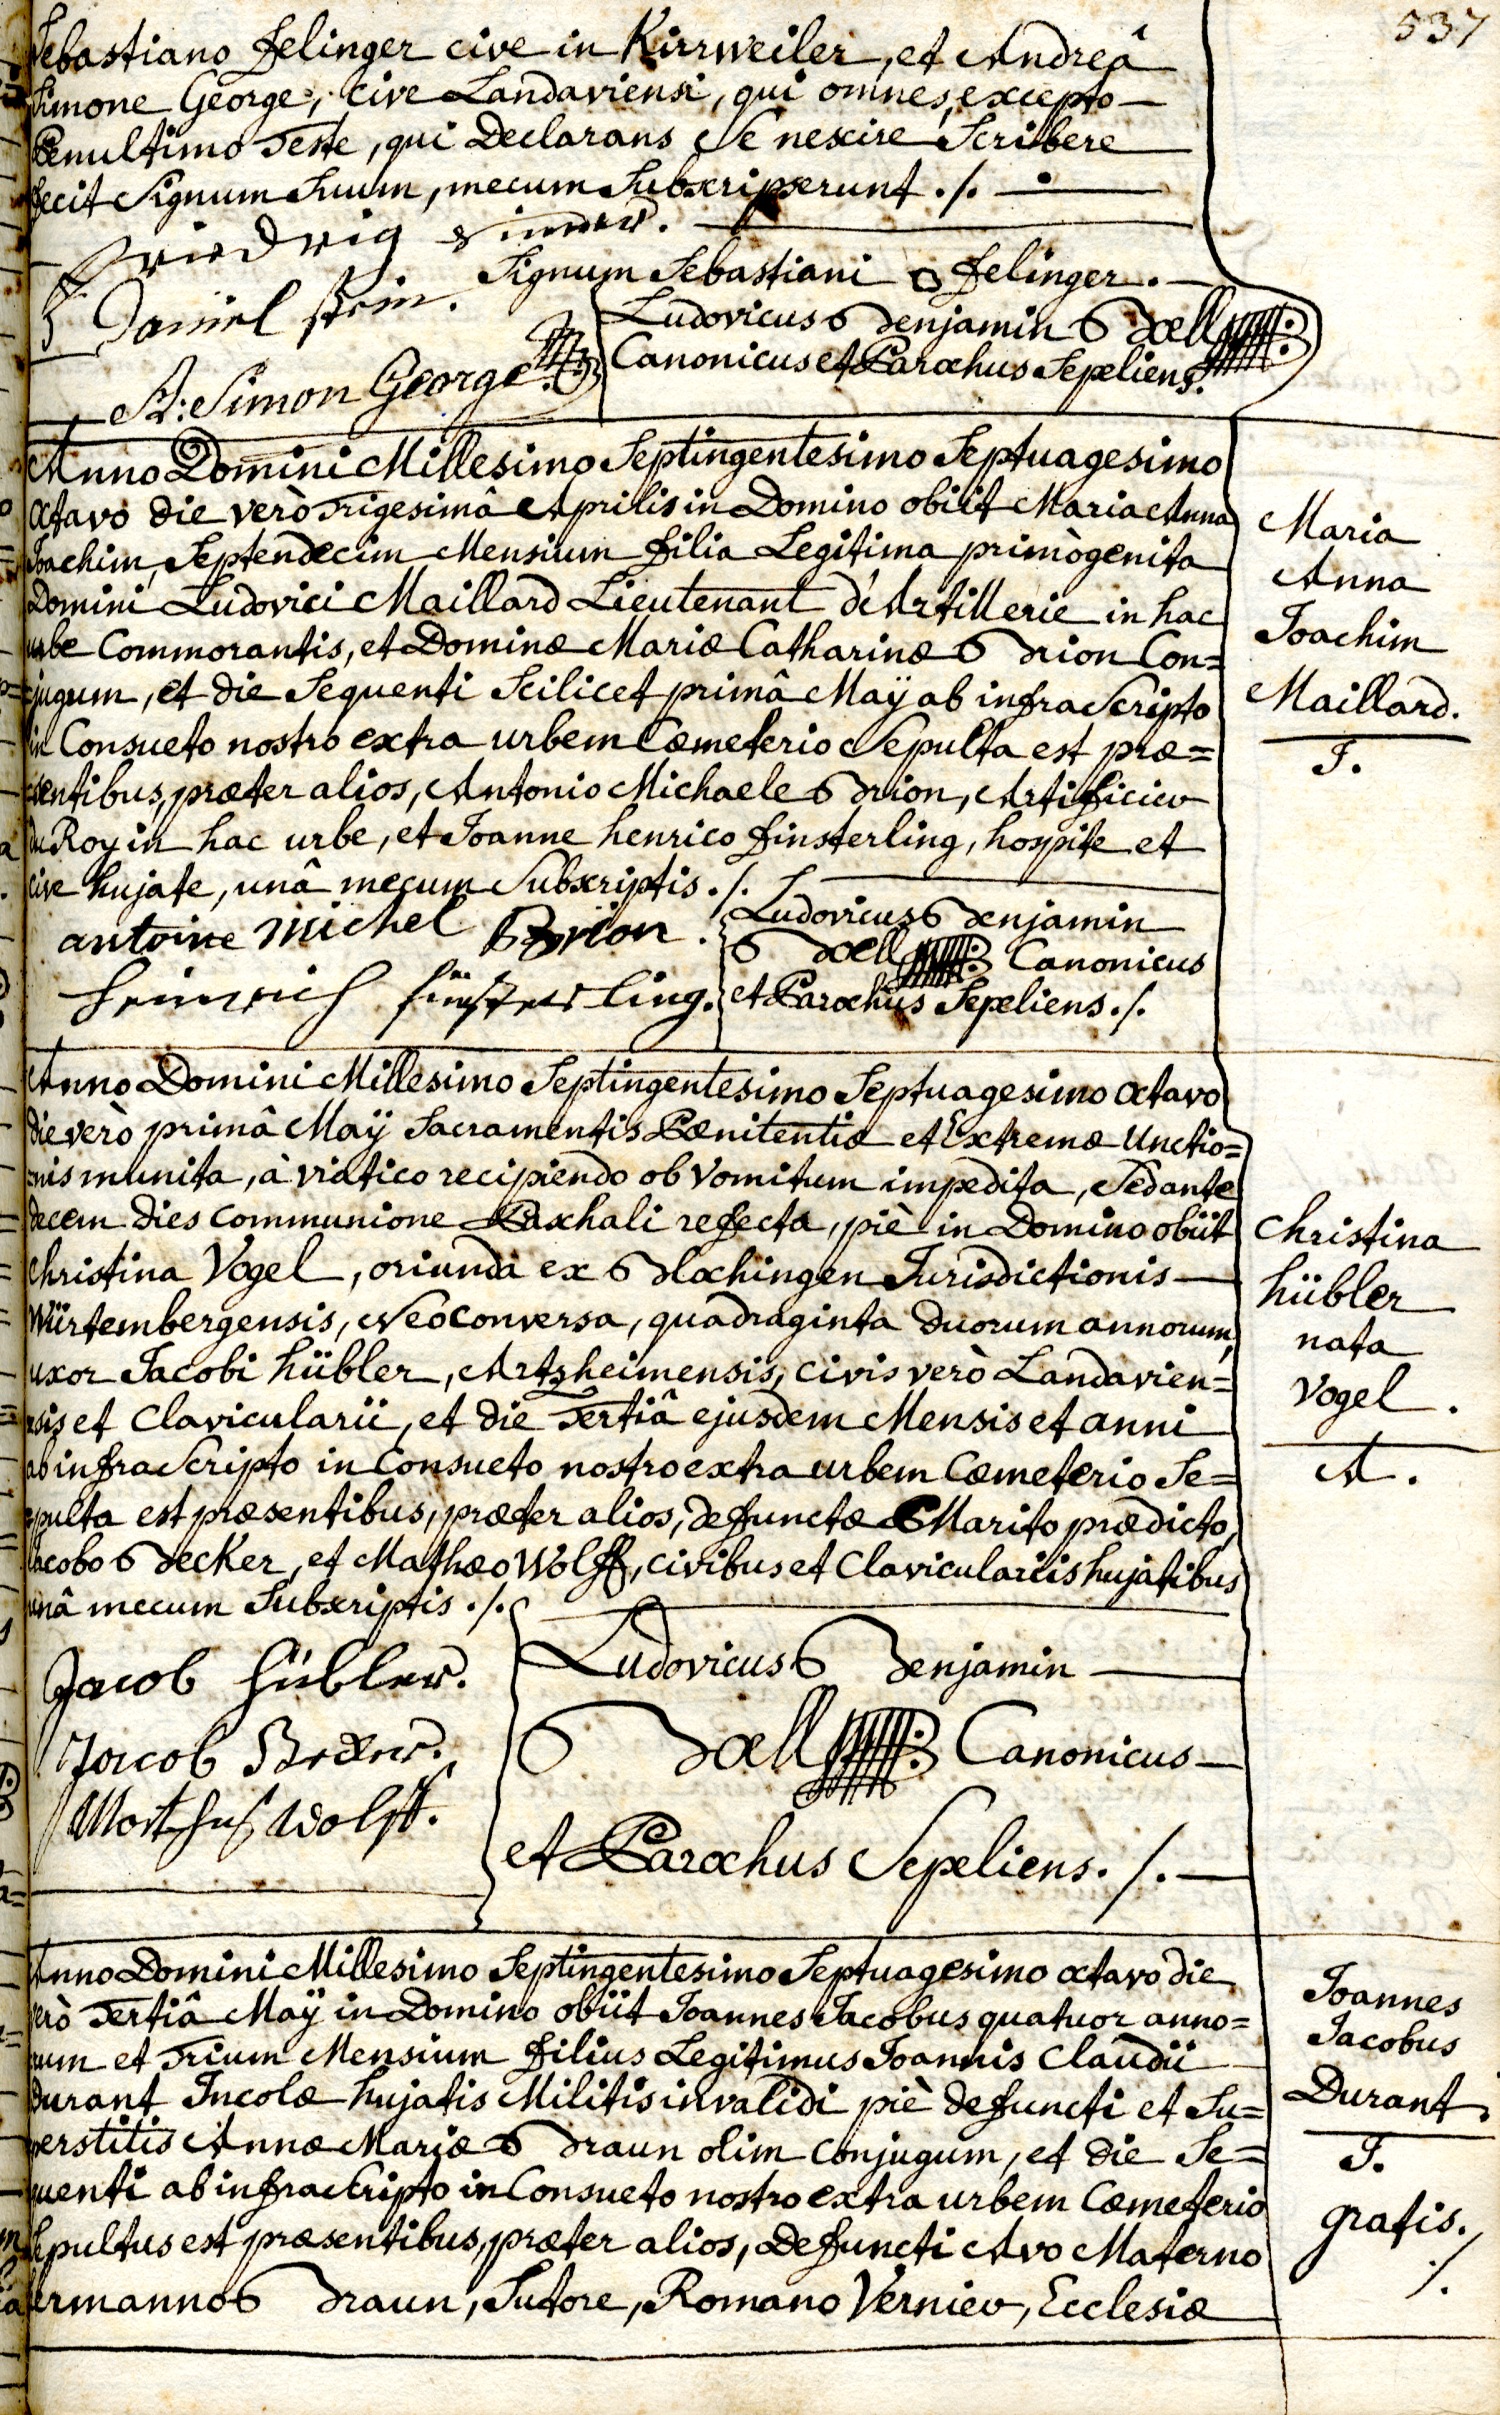 537
Sebastiano Felinger cive in Kirrweiler, et Andreâ
Simone George, cive Landaviensi, qui omnes, excepto
Penultimo Teste, qui Declarans Se nescire Scribere
fecit Signum Suum, mecum Subscripserunt ./.
Friedrig
Signum Sebastiani o Felinger.
Daniel
Ludovicus Benjamin Boell
A: Simon George
Canonicus et Parochus Sepeliens.
Anno Domini Millesimo Septingentesimo Septuagesimo
Octavo die verò Trigesimâ Aprilis in Domino obiit Maria Anna
Joachim, Septendecim Mensium filia Legitima primògenita
Domini Ludovici Maillard Lieutenant d'Artillerie in hac
urbe Commorantis, et Dominæ Mariæ Catharinæ Brion Con=
jugum, et die Sequenti Scilicet primâ Maÿ ab infraScripto
in Consueto nostro extra urbem Cœmeterio Sepulta est præ=
sentibus, præter alios, Antonio Michaele Brion, Artificier
du Roy in hac urbe, et Joanne henrico Finsterling, hospite et
cive hujate, unâ mecum Subscriptis ./.
Maria
Anna
Joachim
Maillard.
J.
antoine Michel Brion.
Ludovicus Benjamin
Boell Canonicus
heinrich finsterling.
et Parochus Sepeliens ./.
Anno Domini Millesimo Septingentesimo Septuagesimo Octavo
die verò primâ Maÿ Sacramentis Pœnitentiæ et Extremæ Unctio=
nis munita, à viatico recipiendo ob vomitum impedita, Sed ante
decem dies communione Paschali refecta, piè in Domino obiit
Christina Vogel, oriunda ex Blochingen Jurisdictionis
Würtembergensis, Neoconversa, quadraginta duorum annorum,
uxor Jacobi hübler, Artzheimensis, civis verò Landavien=
sis et Clavicularii, et die Tertiâ ejusdem Mensis et anni
ab infraScripto in Consueto nostro extra urbem Cœmeterio Se=
pulta est præsentibus, præter alios, defunctæ Marito prædicto,
Jacobo Becker, et Mathæo Wolff, civibus et Claviculariis hujatibus
unâ mecum Subscriptis ./.
Christina
hübler
nata
Vogel.
A.
Jacob hübler.
Ludovicus Benjamin
Jacob Becker.
Boell Canonicus
Wolff.
et Parochus Sepeliens ./.
Anno Domini Millesimo Septingentesimo Septuagesimo octavo die
verò Tertiâ Maÿ in Domino obiit Joannes Jacobus quatuor anno=
rum et Trium Mensium filius Legitimus Joannis Claudii
durant Incolæ hujatis Militis invalidi piè defuncti et Su=
perstitis Annæ Mariæ Braun olim conjugum, et die Se=
quenti ab infraScripto in Consueto nostro extra urbem Cœmeterio
Sepultus est præsentibus, præter alios, Defuncti Avo Materno
hermanno Braun, Sutore, Romano Vernier, Ecclesiæ
Joannes
Jacobus
Durant.
J.
gratis.
./.